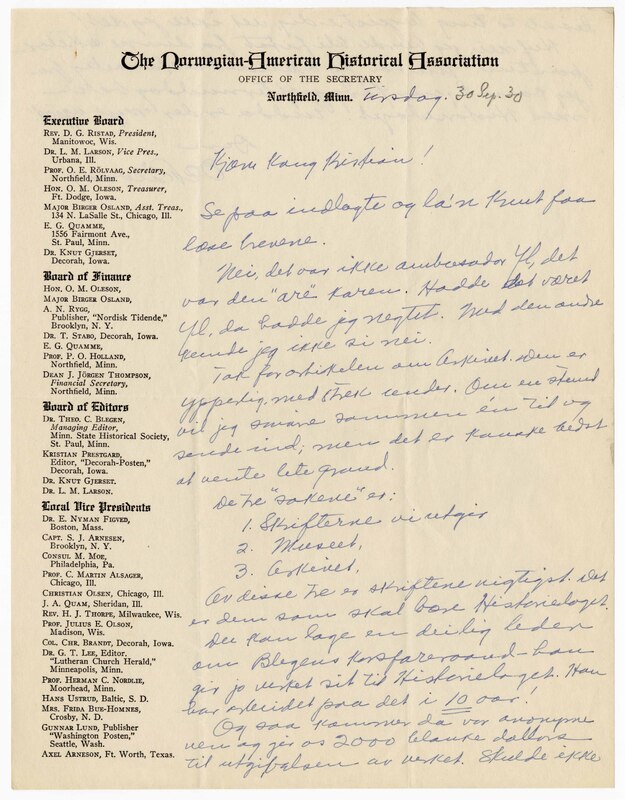 The Norwegian-American Historical Association
OFFICE OF THE SECRETARY
Northfield, Minn. Tirsdag. 30 Sep. 30
Executive Board
REV. D. G. RISTAD, President,
Manitowoc, Wis.
DR. L. M. LARSON, Vice Pres.,
Urbana, Ill.
PROF. O. E. RÖLVAAG, Secretary,
Northfield, Minn.
HON. O. M. OLESON, Treasurer,
Ft. Dodge, Iowa.
MAJOR BIRGER OSLAND, Asst. Treas.,
134 N. LaSalle St., Chicago, Ill.
E. G. QUAMME,
1556 Fairmont Ave.,
St. Paul, Minn.
DR. KNUT GJERSET,
Decorah, Iowa.
Board of Finance
HON. O. M. OLESON,
MAJOR BIRGER OSLAND,
A. N. RYGG,
Publisher, "Nordisk Tidende,"
Brooklyn, N. Y.
DR. T. STABO, Decorah, Iowa.
E. G. QUAMME,
PROF. P. O. HOLLAND,
Northfield, Minn.
DEAN J. JÖRGEN THOMPSON,
Financial Secretary,
Northfield, Minn.
Board of Editors
DR. THEO. C. BLEGEN,
Managing Editor,
Minn. State Historical Society,
St. Paul, Minn.
KRISTIAN PRESTGARD,
Editor, "Decorah-Posten,"
Decorah, Iowa.
DR. KNUT GJERSET.
DR. L. M. LARSON.
Local Vice Presidents
DR. E. NYMAN FIGVED,
Boston, Mass.
CAPT. S. J. ARNESEN,
Brooklyn, N. Y.
CONSUL M. MOE,
Philadelphia, Pa.
PROF. C. MARTIN ALSAGER,
Chicago, Ill.
CHRISTIAN OLSEN, Chicago, Ill.
J. A. QUAM, Sheridan, Ill.
REV. H. J. THORPE, Milwaukee, Wis.
PROF. JULIUS E. OLSON,
Madison, Wis.
COL. CHR. BRANDT, Decorah, Iowa.
DR. G. T. LEE, Editor,
"Lutheran Church Herald,"
Minneapolis, Minn.
PROF. HERMAN C. NORDLIE,
Moorhead, Minn.
HANS USTRUD, Baltic, S. D.
MRS. FRIDA BUE-HOMNES,
Crosby, N. D.
GUNNAR LUND, Publisher
"Washington Posten,"
Seattle, Wash.
AXEL ARNESON, Ft. Worth, Texas.
Kjære Kong Kristian!
Se paa indlagte og la'n Knut faa
læse brevene.
Nei, det var ikke ambasadør Yl, det
var den "ære" Karen. Hadde det været
Yl, da hadde jeg negtet. Med den andre
kunde jeg ikke si nei.
Tak for artikelen om Arkivet. Den er
ypperlig, med strek under. Om en stund
vil jeg smøre sammen én til og
sende ind; men det er kanske bedst
at vente lite grand.
De tre "sakene" er:
1. Skrifterne vi utgir
2. Museet,
3. Arkivet,
Av disse tre er skriftene vigtigst. Det
er dem som skal bære Historielaget.
Du kan lage en deilig leder
om Blegens han
gir jo verket sit til Historielaget. Han
har arbeidet paa det i 10 aar!
Og saa kommer da vor anonyme
ven og gir os 2000 blanke dollars
til utgivelsen av verket. Skulde ikke